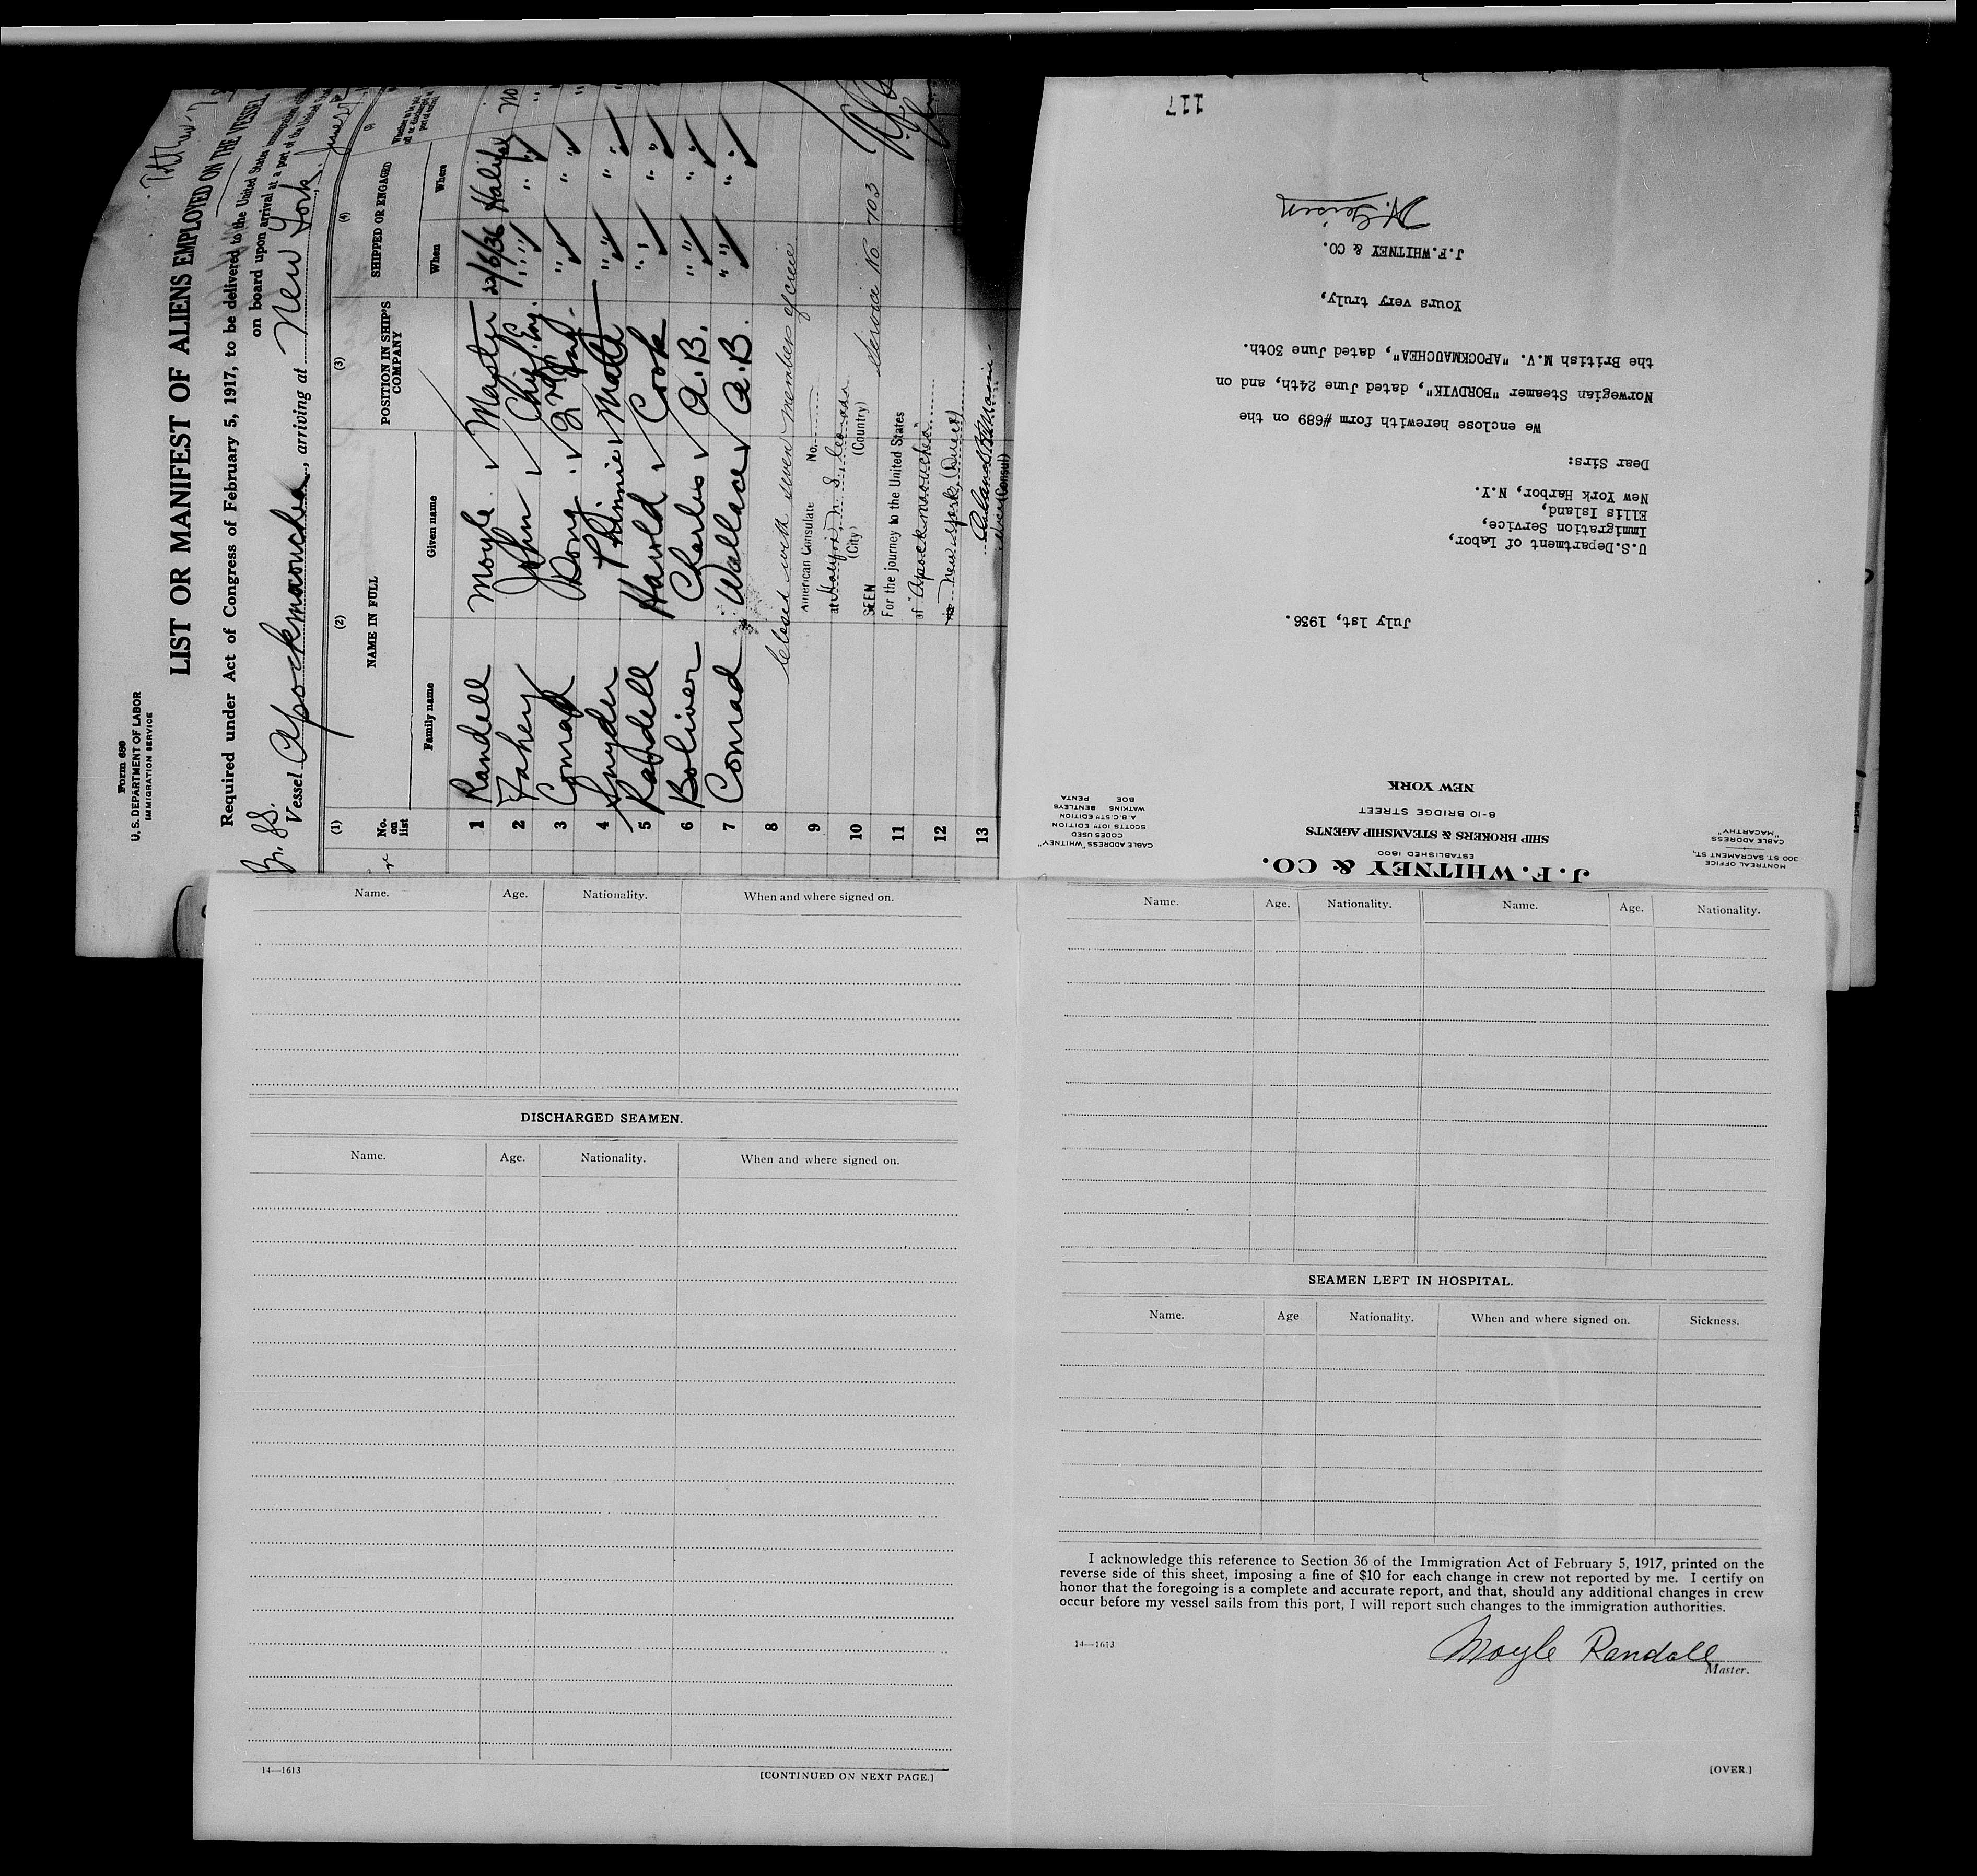 Form 689
U. S. DEPARTMENT OF LABOR
IMMIGRATION SERVICE
LIST OR MANIFEST OF ALIENS EMPLOYED ON THE VESSEL
Required under Act of Congress of February 5, 1917, to be delivered to the United States immigration
on board upon arrival at a port of the United
Br. SS.
Vessel Apockmouchea, arriving at New York,
(1) (2) (3) (4) (5)
No. on list
NAME IN FULL
POSITION IN SHIP'S COMPANY
SHIPPED OR ENGAGED
Family name Given name When Where
1 Randell Moyle Master 22/6/36 Halifax no
2 Fahey John Chief Eng. " " " "
3 Conrad Doug. 2nd Eng. " " " "
4 Snyder Mate " " " "
5 Randell Harold Cook " " " "
6 Boliver Charles A.B. " " " "
7 Conrad Wallace A.B. " " " "
8 Closed with seven members of crew
9 American Consulate No.
at Halifax N. S. Canada
(City) (Country)
10 SEEN Service No. 703
11 For the journey to the United States
of "Apockmouchea"
12 New York (Direct)
13
Vice (Consul)
117
J. F. WHITNEY & CO.
ESTABLISHED 1800
SHIP BROKERS & STEAMSHIP AGENTS
8-10 BRIDGE STREET
NEW YORK
MONTREAL OFFICE
300 ST SACRAMENT ST.,
CABLE ADDRESS
"MACARTHY"
CABLE ADDRESS "WHITNEY"
CODES USED
SCOTTS 10TH EDITION
A.B.C. 5TH EDITION
WATKINS BENTLEYS
BOE PENTA
July 1st, 1936.
U.S.Department of Labor,
Immigration Service,
Ellis Island,
New York Harbor, N.Y.
Dear Sirs:
We enclose herewith form #689 on the
Norwegian Steamer "BORDVIK", dated June 24th, and on
the British M.V. "APOCKMAUCHEA", dated June 30th.
Yours very truly,
J.F.WHITNEY & CO.
Name. Age. Nationality. When and where signed on.
DISCHARGED SEAMEN.
Name. Age. Nationality. When and where signed on.
14—1613
[CONTINUED ON NEXT PAGE.]
Name. Age. Nationality. Name. Age. Nationality.
SEAMEN LEFT IN HOSPITAL.
Name. Age Nationality. When and where signed on. Sickness.
I acknowledge this reference to Section 36 of the Immigration Act of February 5, 1917, printed on the
reverse side of this sheet, imposing a fine of $10 for each change in crew not reported by me. I certify on
honor that the foregoing is a complete and accurate report, and that, should any additional changes in crew
occur before my vessel sails from this port, I will report such changes to the immigration authorities.
14—1613
Moyle Randall
Master.
[OVER.]